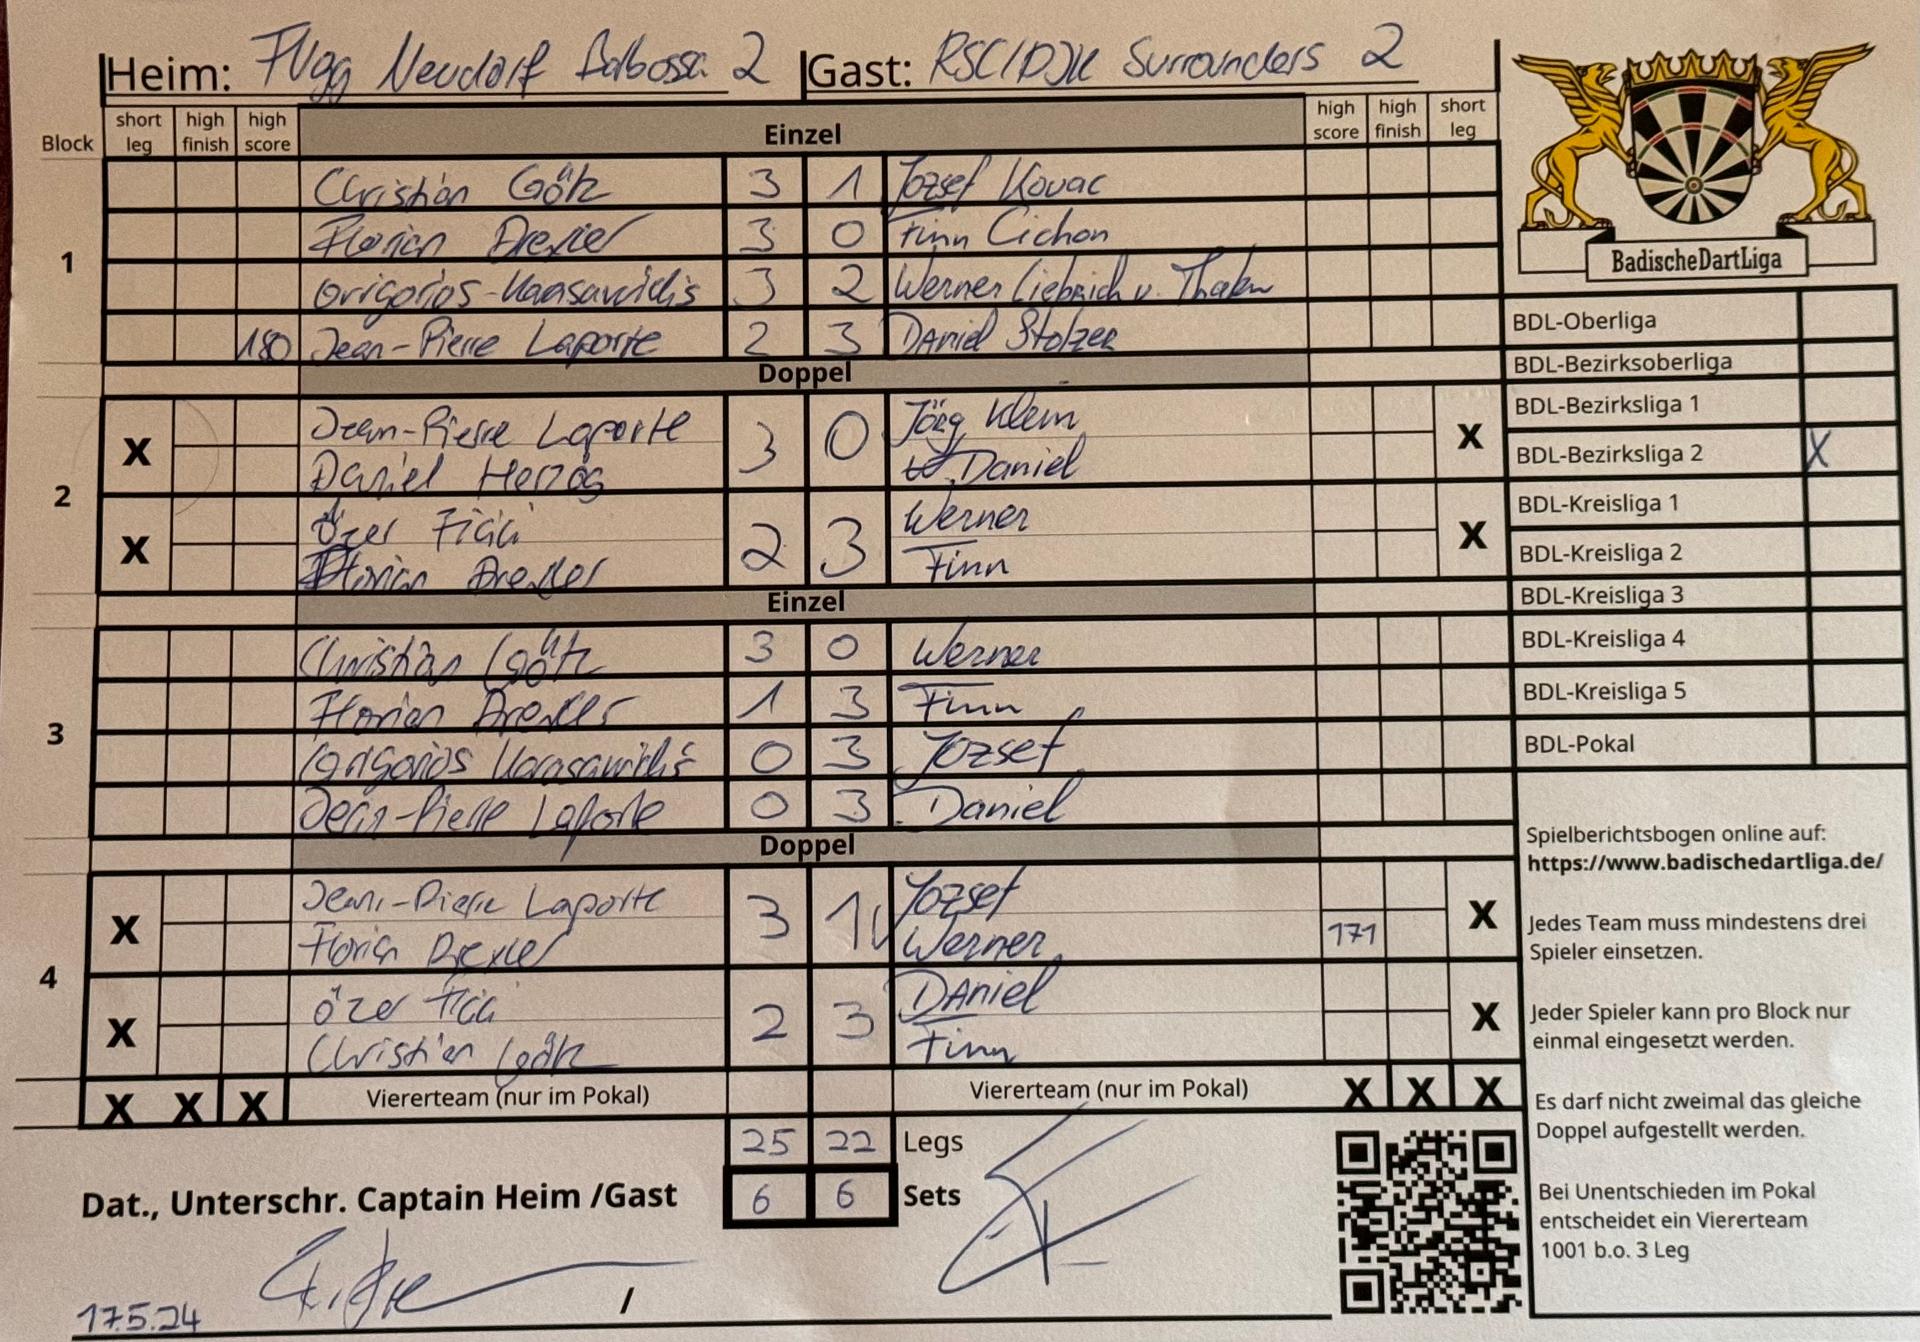 Heim: Flügg Neudorf Balbossa 2 Gast: RSC/DJK Surrounders 2
Block short leg high finish high score Einzel high score high finish short leg
1
Christian Götz 3 1 Jozsef Kovac
Florian Drexler 3 0 Finn Cichon
Grigorios Karasavvidis 3 2 Werner Liebrich v. Thaken
180 Jean-Pierre Laporte 2 3 Daniel Stolzer
Doppel
2
X Jean-Pierre Laporte 3 0 Jörg Klein X
Daniel Herzog Daniel
X Özer Ficici 2 3 Werner X
Florian Drexler Finn
Einzel
3
Christian Götz 3 0 Werner
Florian Drexler 1 3 Finn
Grigorios Karasavvidis 0 3 Jozsef
Jean-Pierre Laporte 0 3 Daniel
Doppel
4
X Jean-Pierre Laporte 3 1 Jozsef X
Florian Drexler Werner 171
X Özer Ficici 2 3 Daniel X
Christian Götz Finn
X X X Viererteam (nur im Pokal) Viererteam (nur im Pokal) X X X
25 22 Legs
Dat., Unterschr. Captain Heim /Gast 6 6 Sets
17.5.24 /
BadischeDartLiga
BDL-Oberliga
BDL-Bezirksoberliga
BDL-Bezirksliga 1
BDL-Bezirksliga 2 X
BDL-Kreisliga 1
BDL-Kreisliga 2
BDL-Kreisliga 3
BDL-Kreisliga 4
BDL-Kreisliga 5
BDL-Pokal
Spielberichtsbogen online auf:
https://www.badischedartliga.de/
Jedes Team muss mindestens drei
Spieler einsetzen.
Jeder Spieler kann pro Block nur
einmal eingesetzt werden.
Es darf nicht zweimal das gleiche
Doppel aufgestellt werden.
Bei Unentschieden im Pokal
entscheidet ein Viererteam
1001 b.o. 3 Leg